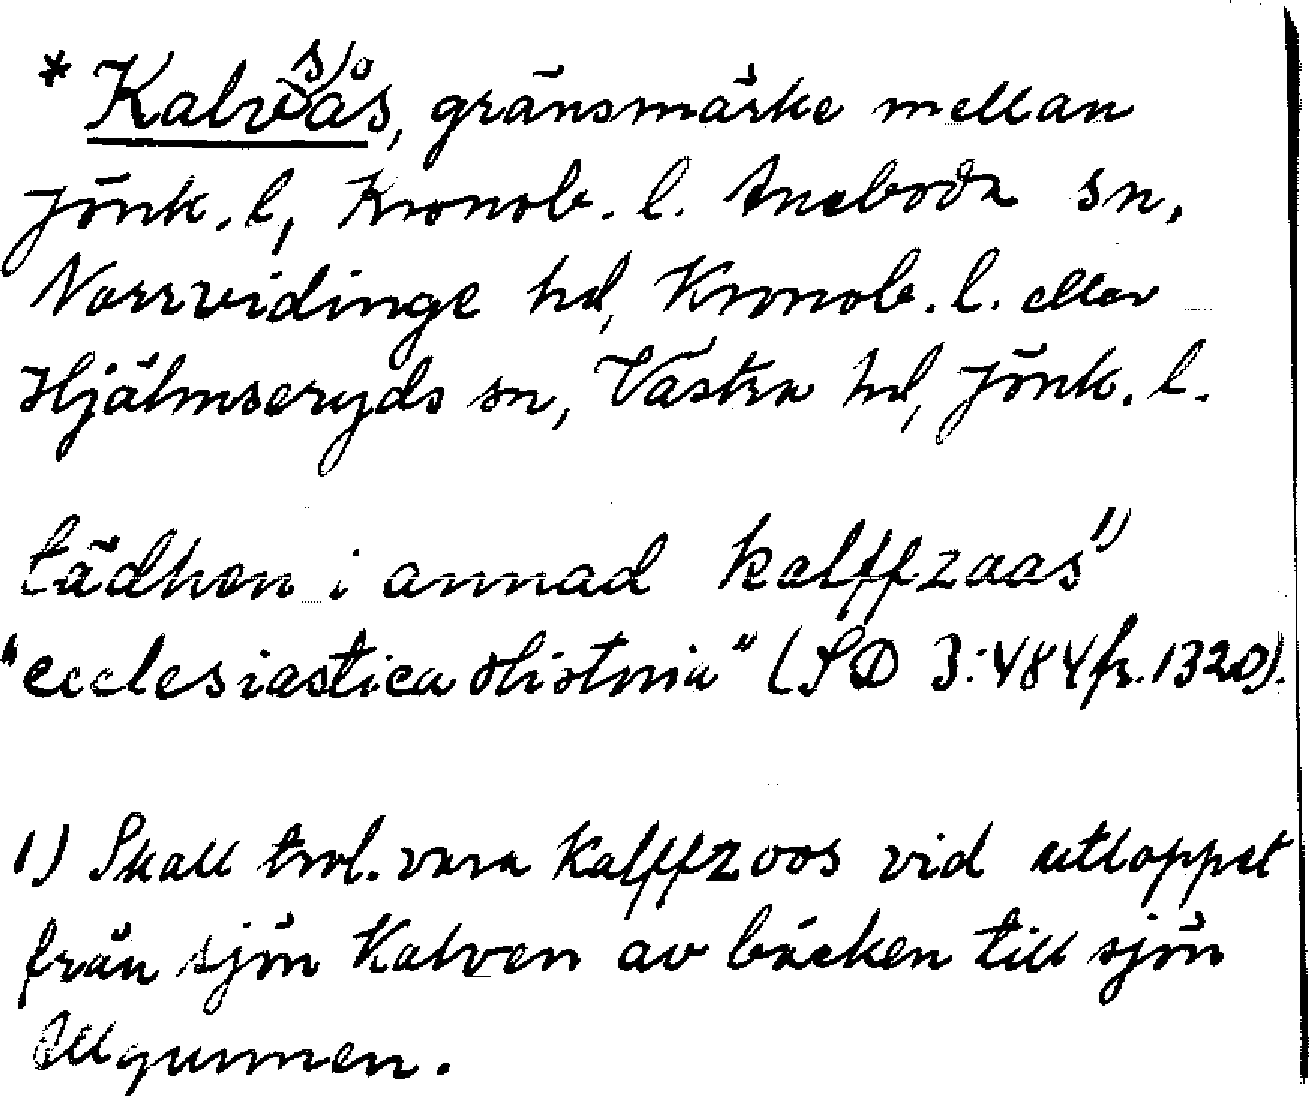 * Kalvsås, gränsmärke mellan
Jönk. l, Kronob. l. Aneboda sn,
Norrvidinge hd, Kronob. l. eller
Hjälmseryds sn, Västra hd, Jönk. l.
tädhen i annad kalffzaas 1)
"ecclesiastica Historia" (SD 3:484 fr. 1320).
1) Skall trol. vara Kalffzoos vid utloppet
från sjön Kalven av bäcken till sjön
Allgunnen.